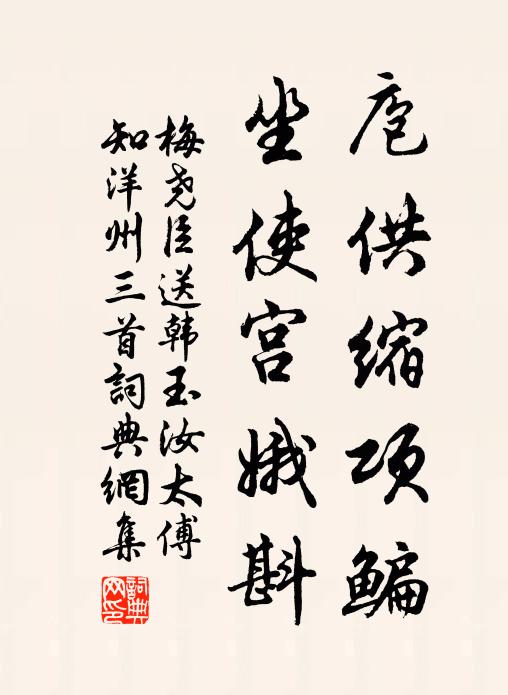 庖供缩项鳊
坐使宫娥斟
梅尧臣送韩玉汝太傅
知洋州三首詞典網集
詞典網印